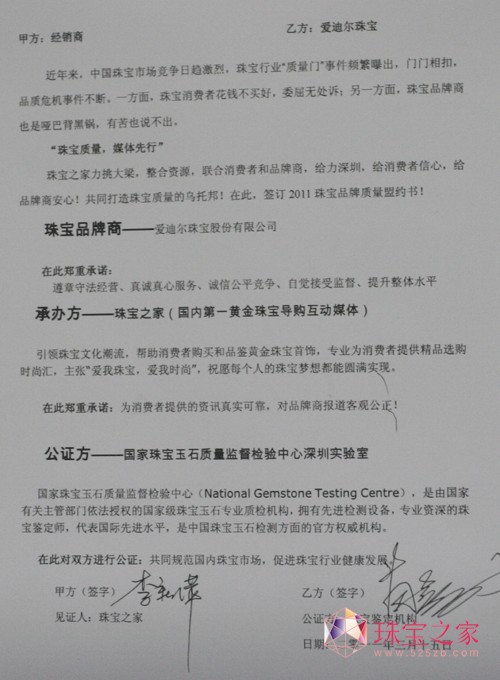 甲方：经销商　　　　　　乙方：爱迪尔珠宝
近年来，中国珠宝市场竞争日趋激烈，珠宝行业“质量门”事件频繁曝出，门门相扣，
品质危机事件不断。一方面，珠宝消费者花钱不买好，委屈无处诉；另一方面，珠宝品牌商
也是哑巴背黑锅，有苦也说不出。
“珠宝质量，媒体先行”
珠宝之家力挑大梁，整合资源，联合消费者和品牌商，给力深圳，给消费者信心，给
品牌商安心！共同打造珠宝质量的乌托邦！在此，签订 2011 珠宝品牌质量盟约书！
珠宝品牌商——爱迪尔珠宝股份有限公司
在此郑重承诺：
遵章守法经营、真诚真心服务、诚信公平竞争、自觉接受监督、提升整体水平
承办方——珠宝之家（国内第一黄金珠宝导购互动媒体）
引领珠宝文化潮流，帮助消费者购买和品鉴黄金珠宝首饰，专业为消费者提供精品选购
时尚汇，主张“爱我珠宝，爱我时尚”，祝愿每个人的珠宝梦想都能圆满实现。
在此郑重承诺：为消费者提供的资讯真实可靠，对品牌商报道客观公正！
公证方——国家珠宝玉石质量监督检验中心深圳实验室
国家珠宝玉石质量监督检验中心（National Gemstone Testing Centre），是由国家
有关主管部门依法授权的国家级珠宝玉石专业质检机构，拥有先进检测设备，专业资深的珠
宝鉴定师，代表国际先进水平，是中国珠宝玉石检测方面的官方权威机构。
在此对双方进行公证：共同规范国内珠宝市场，促进珠宝行业健康发展
甲方（签字）　　　　　　乙方（签字）
见证人：珠宝之家　　　　公证方：珠宝鉴定机构
日期：二〇一一年三月十五日
珠宝之家
www.525zb.com